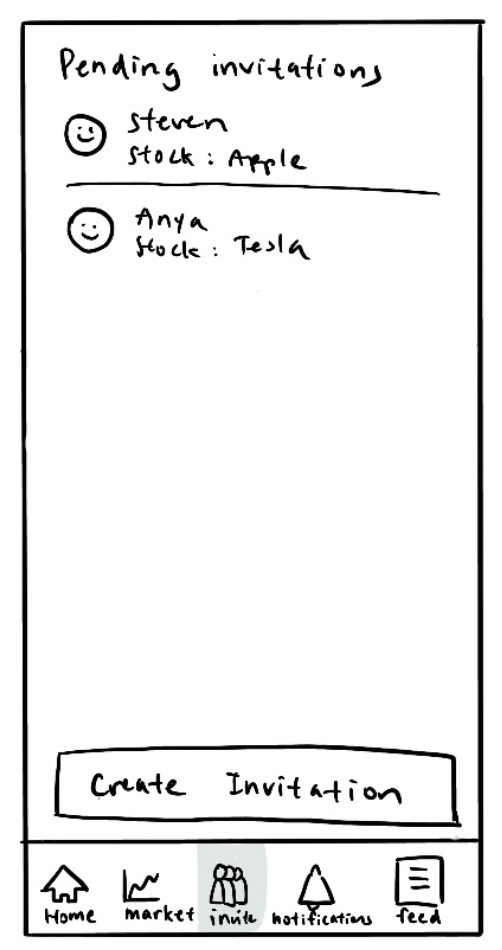 Pending invitations
Steven
Stock : Apple
Anya
Stock : Tesla
Create Invitation
Home
market
invite
notifications
feed